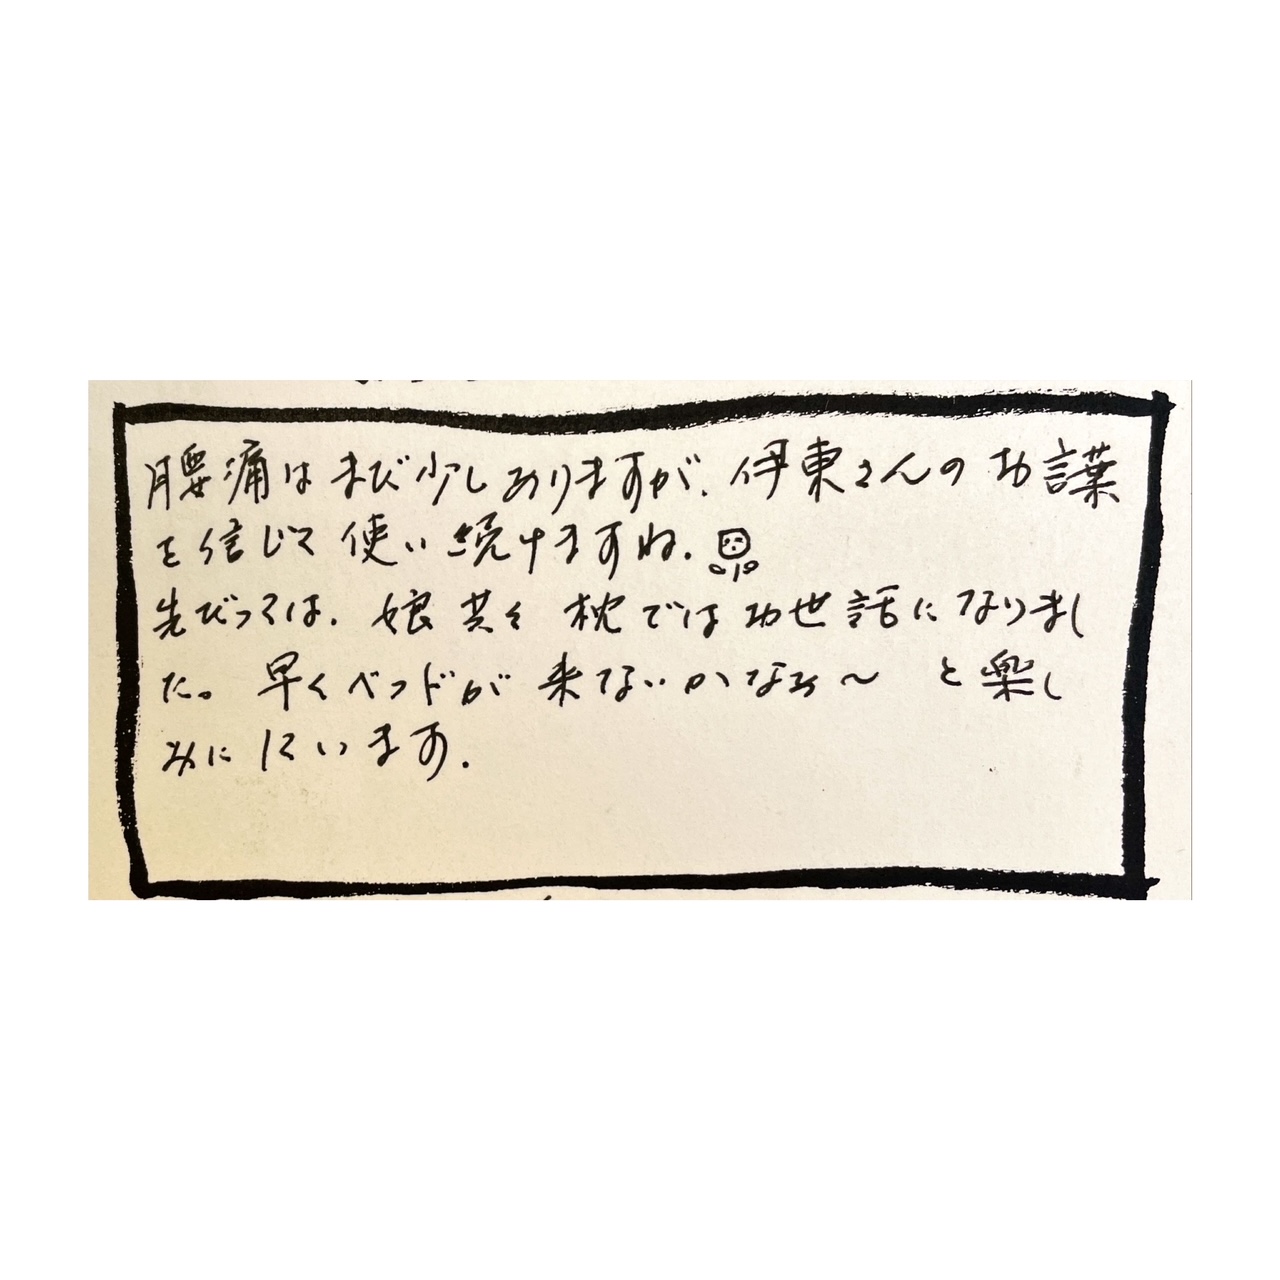 腰痛はまだ少しありますが、伊東さんのお言葉
を信じて使い続けますね。
先だっては、娘共々枕ではお世話になりまし
た。早くベッドが来ないかなぁ〜と楽し
みにしています。